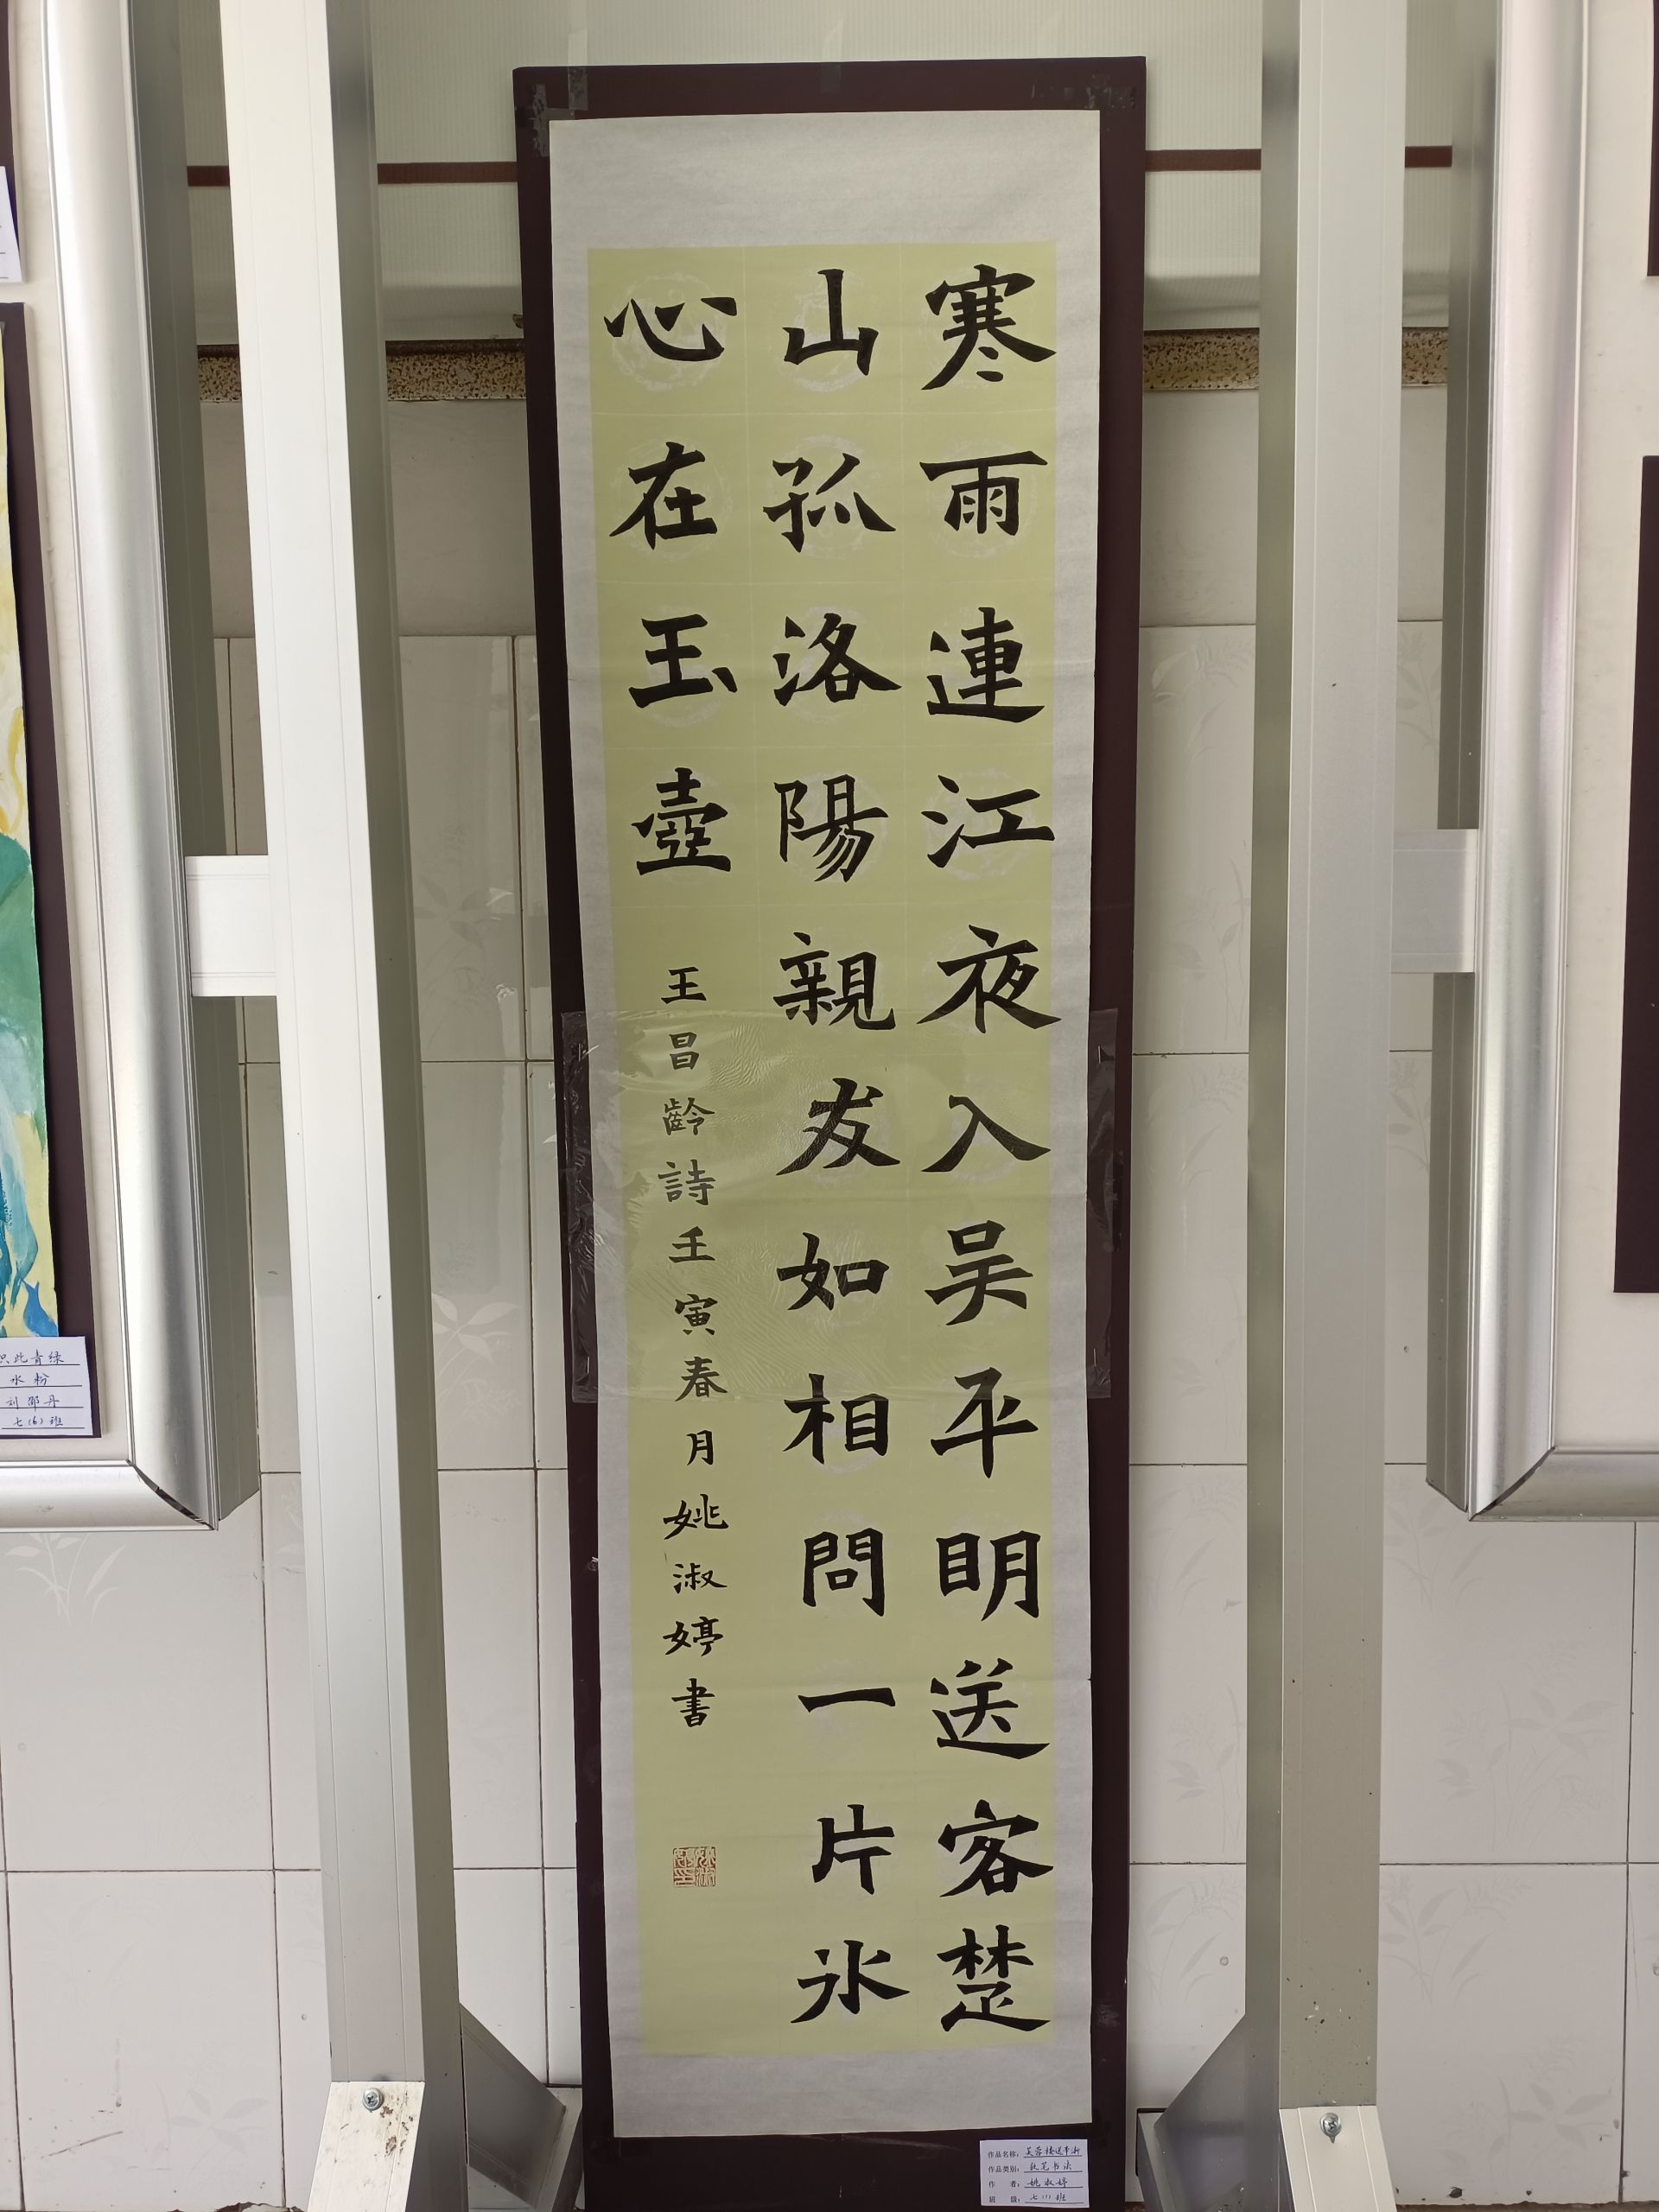 寒雨連江夜入吴平明送客楚
山孤洛陽親友如相問一片氷
心在玉壺
王昌齡詩壬寅春月姚淑婷書
作品名称：芙蓉楼送辛渐
作品类别：软笔书法
作 者：姚淑婷
班 级：七（1）班
此青绿
水粉
刘邵丹
七（6）班